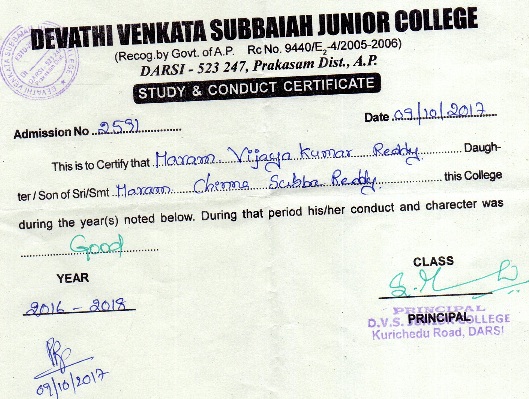 DEVATHI VENKATA SUBBAIAH JUNIOR COLLEGE
(Recog.by Govt. of A.P. Rc No. 9440/E2-4/2005-2006)
DARSI - 523 247, Prakasam Dist., A.P.
STUDY & CONDUCT CERTIFICATE
Admission No. 2591 Date 09/10/2017
This is to Certify that Maram Vijaya Kumar Reddy Daugh-
ter / Son of Sri/Smt Maram Chinna Subba Reddy this College
during the year(s) noted below. During that period his/her conduct and charecter was
Good
YEAR CLASS
2016 - 2018
PRINCIPAL
PRINCIPAL
D.V.S. JUNIOR COLLEGE
Kurichedu Road, DARSI
09/10/2017